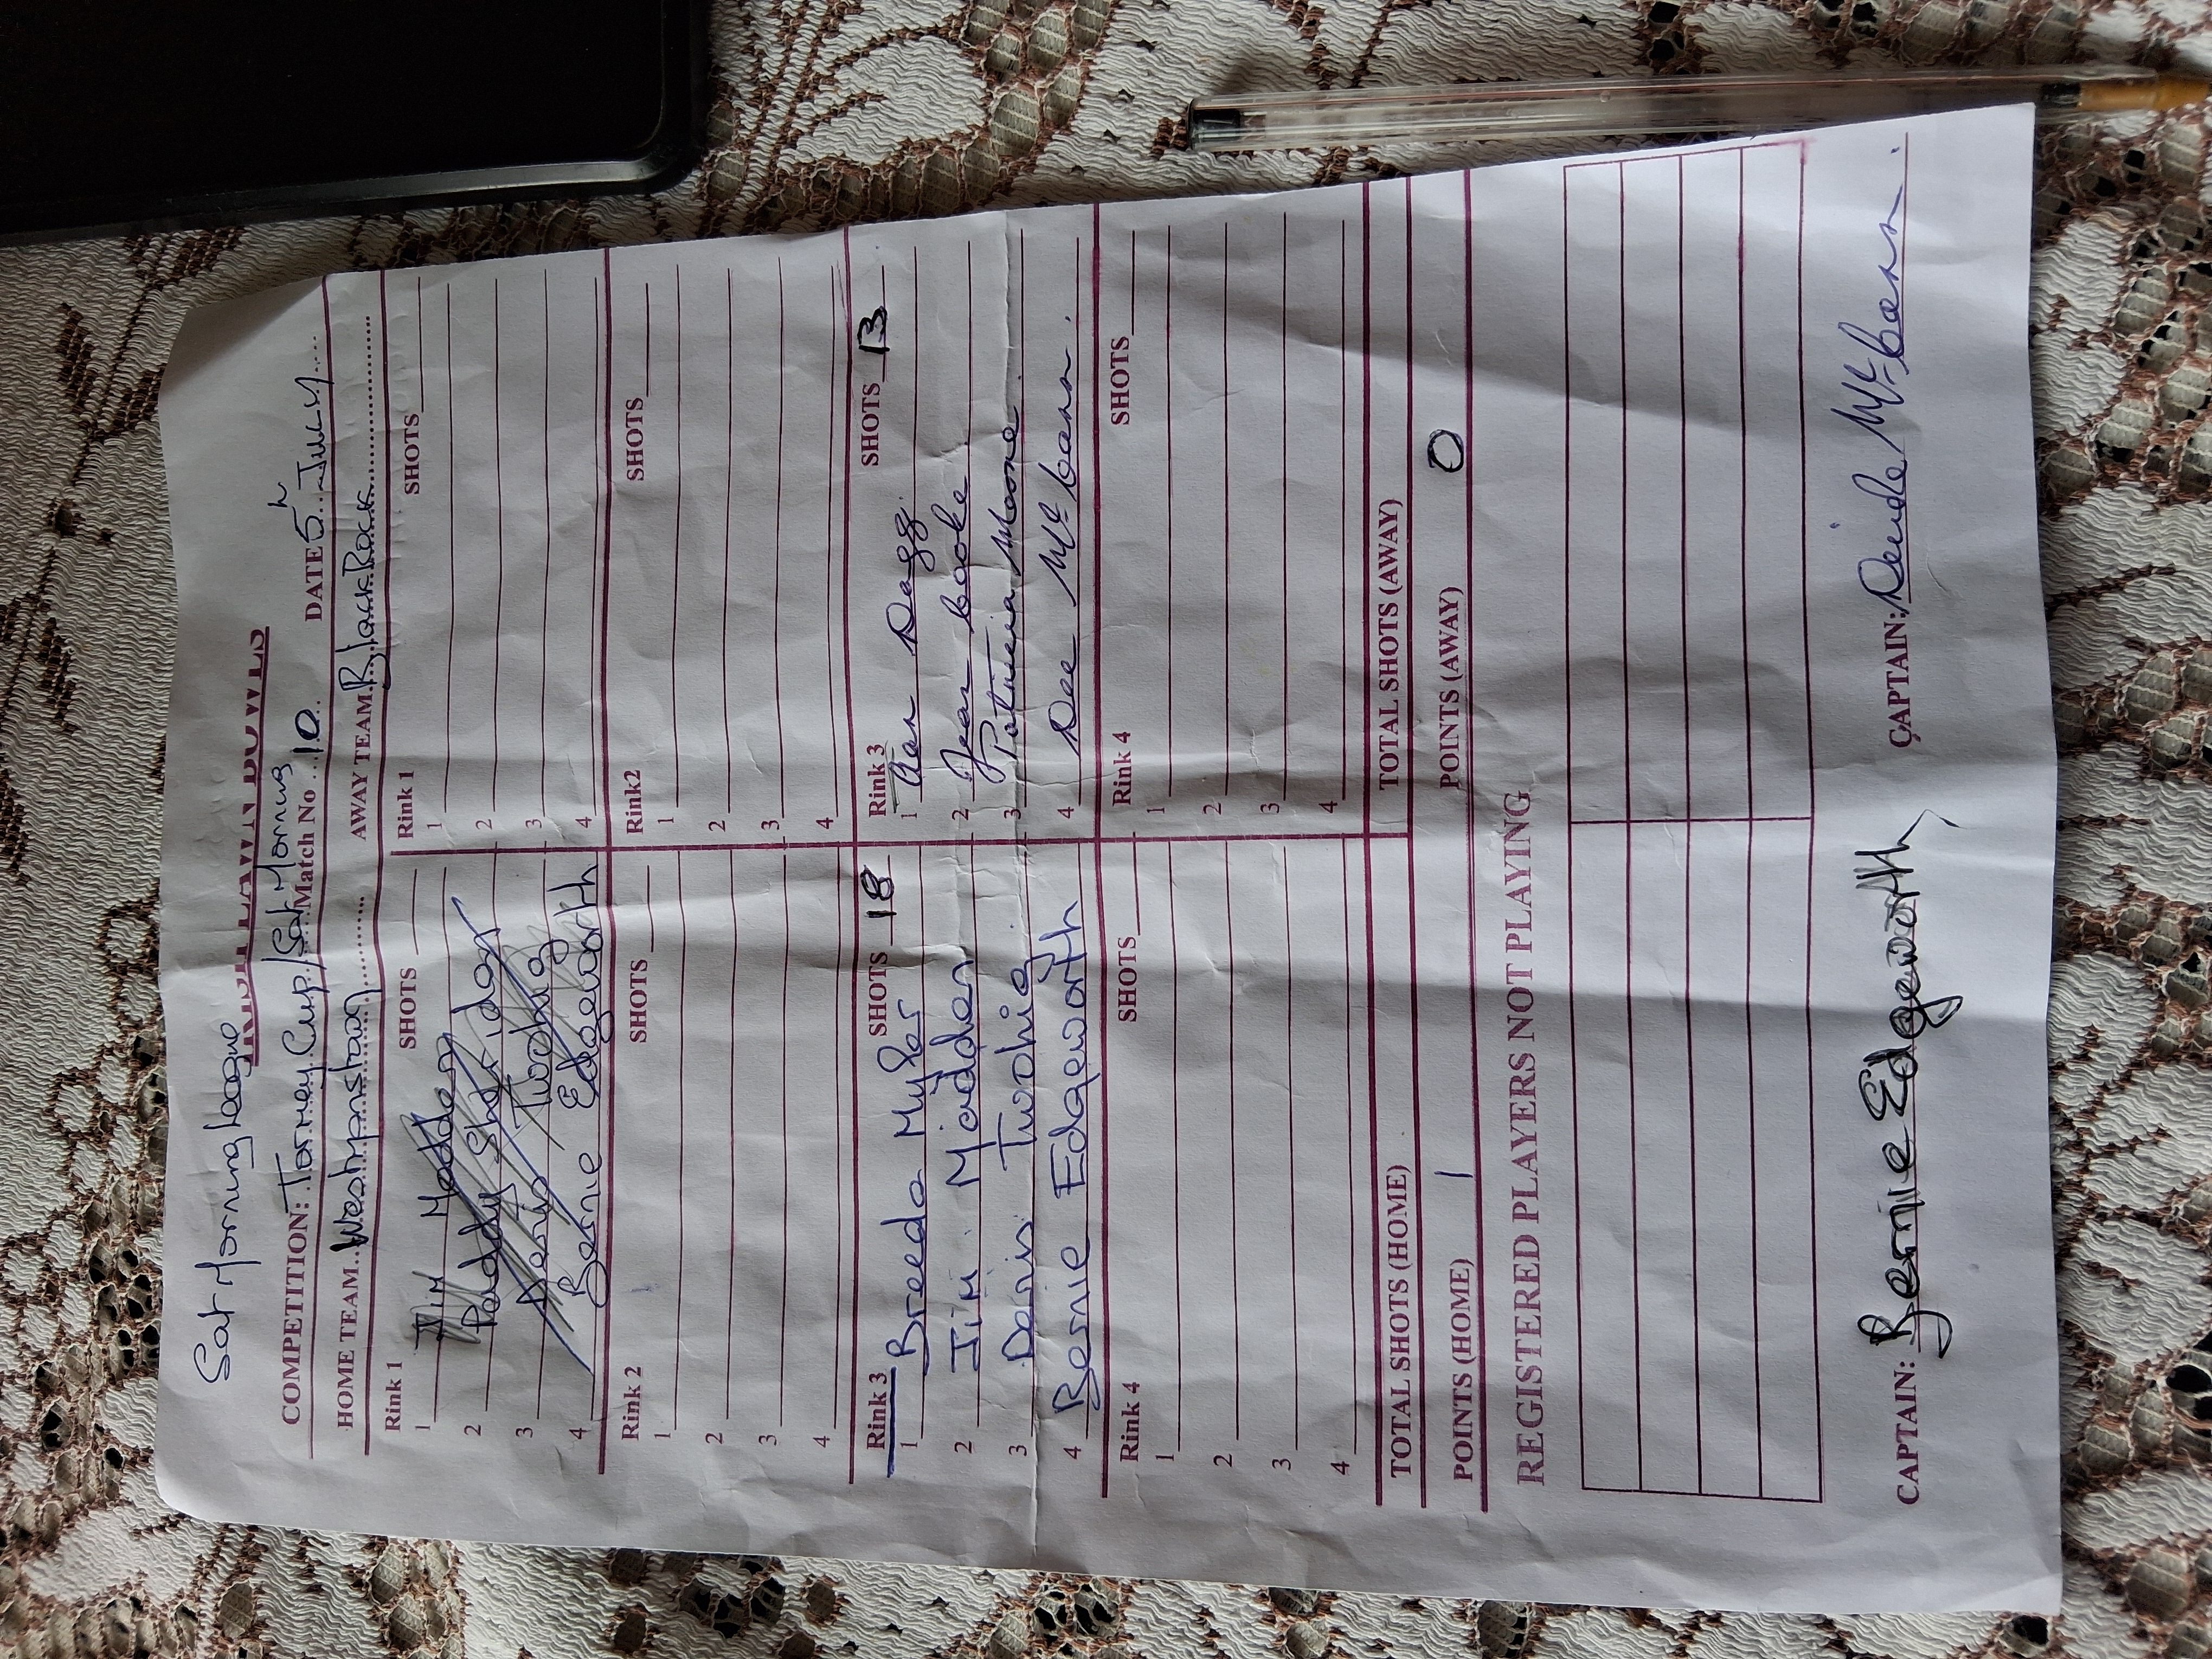 Sat Morning League
IRISH LAWN BOWLS
COMPETITION: Tormey Cup/Sat Morning
Match No 10 DATE 5th July
HOME TEAM Westmanstown AWAY TEAM BlackRock
Rink 1 SHOTS Rink 1 SHOTS
1 Jim Madden 1
2 Paddy Sheridan 2
3 Denis Twohig 3
4 Bernie Edgeworth 4
Rink 2 SHOTS Rink2 SHOTS
1 1
2 2
3 3
4 4
Rink 3 SHOTS 18 Rink 3 SHOTS 13
1 Breeda Myler 1 Ann Dagg
2 Jim Madden 2 Jean Cooke
3 Denis Twohig 3 Patricia Moone
4 Bernie Edgeworth 4 Dee McCann.
Rink 4 SHOTS Rink 4 SHOTS
1 1
2 2
3 3
4 4
TOTAL SHOTS (HOME) TOTAL SHOTS (AWAY)
POINTS (HOME) 1 POINTS (AWAY) 0
REGISTERED PLAYERS NOT PLAYING
CAPTAIN: Bernie Edgeworth CAPTAIN: Deirdre McCann.